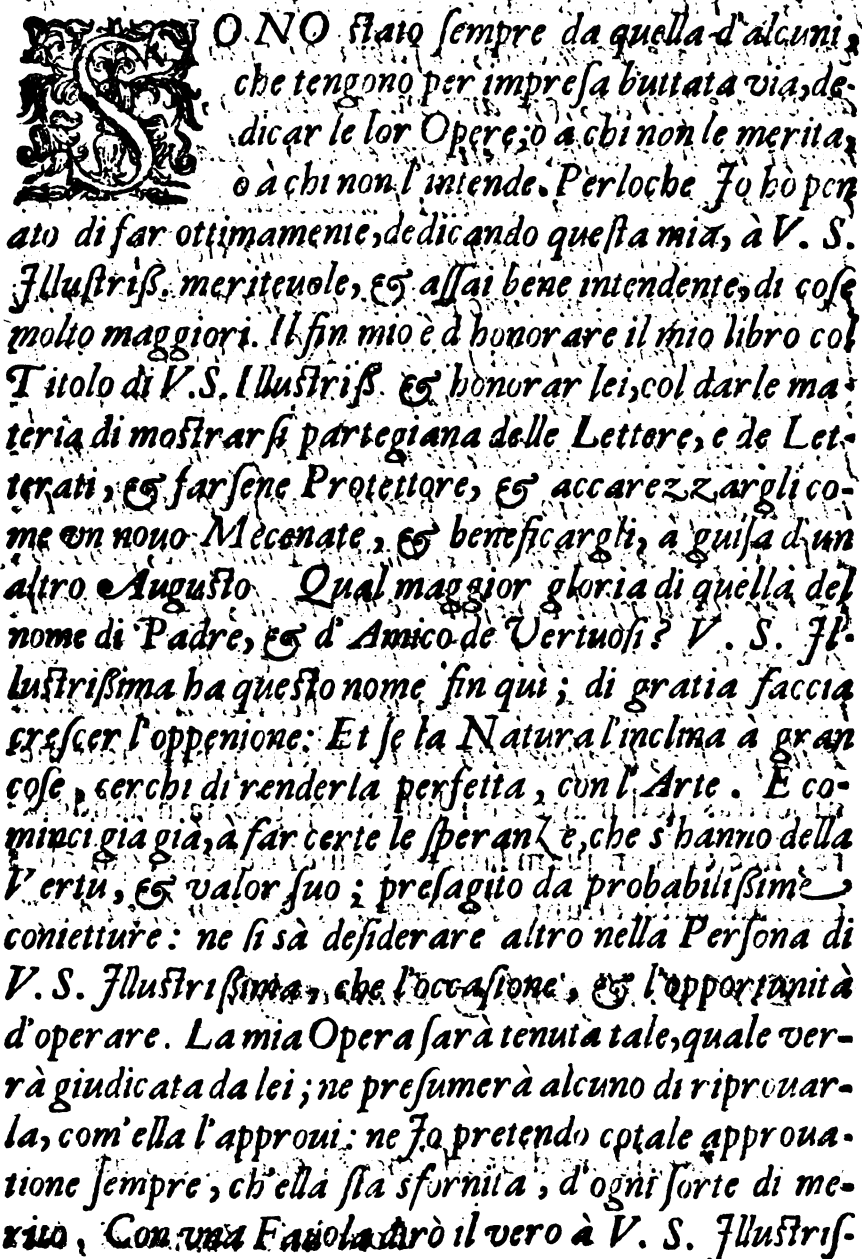 SONO ſtato ſempre da quella d'alcuni,
che tengono per impreſa buttata via, de-
dicar le lor Opere; ò à chi non le merita,
o à chi non l'intende. Perloche Io hò pen
ato di far ottimamente, dedicando queſta mia, à V. S.
Illuſtriß. meriteuole, & aſſai bene intendente, di coſe
molto maggiori. Il fin mio è d honorare il mio libro col
Titolo di V.S. Illuſtriß. & honorar lei, col darle ma-
teria di moſtrarſi partegiana delle Lettere, e de Let-
terati, & farſene Protettore, & accarezzargli co-
me vn nouo Mecenate, & beneficargli, à guiſa d'un
altro Auguſto Qual maggior gloria di quella del
nome di Padre, & d'Amico de Vertuoſi? V. S. Il-
luſtrißima ha queſto nome fin qui; di gratia faccia
creſcer l'oppenione: Et ſe la Natura l'inclina à gran
coſe, cerchi di renderla perfetta, con l'Arte. E co-
minci gia già, à far certe le ſperanze, che s'hanno della
Vertù, & valor ſuo; preſagito da probabilißime
conietture: ne ſi sà deſiderare altro nella Perſona di
V. S. Illuſtrißima, che l'occaſione, & l'opportunità
d'operare. La mia Opera ſarà tenuta tale, quale ver-
rà giudicata da lei; ne preſumerà alcuno di riprouar-
la, com'ella l'approui: ne Io pretendo cotale approua-
tione ſempre, ch'ella ſia sfornita, d'ogni ſorte di me-
rito. Con vna Fauola dirò il vero à V. S. Illuſtriſ-